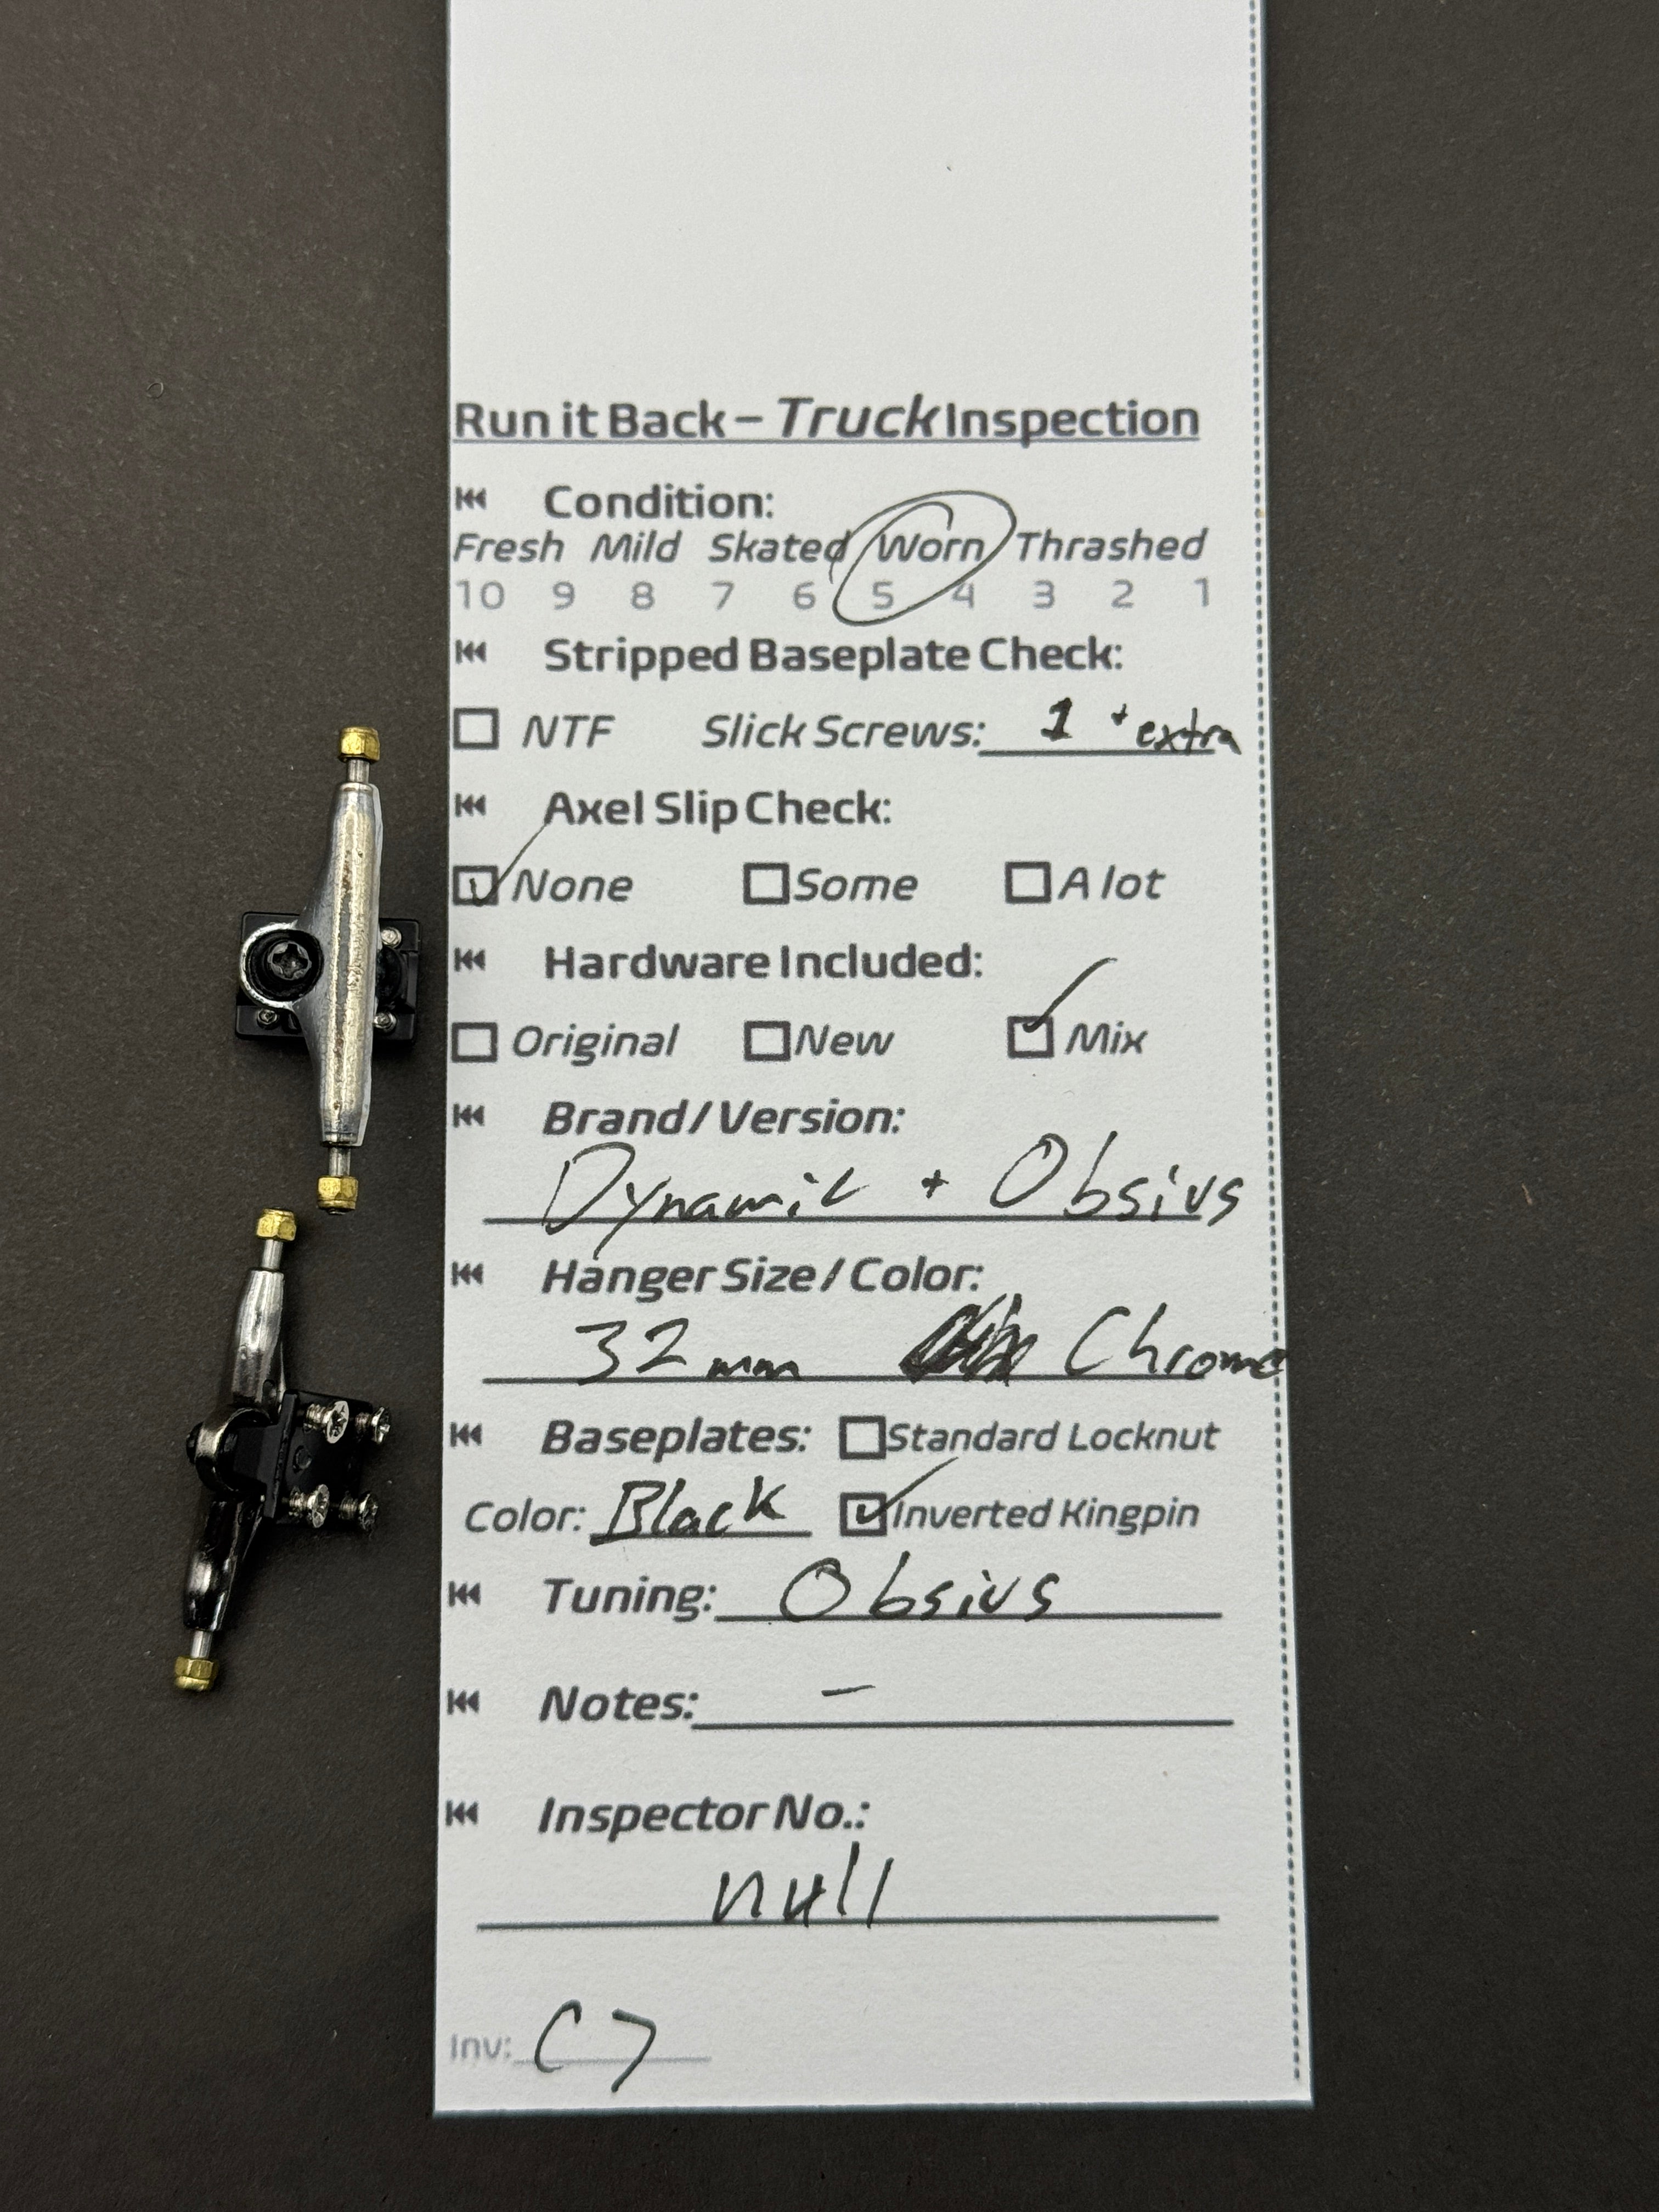 Run it Back – Truck Inspection
Condition:
Fresh Mild Skated Worn Thrashed
10 9 8 7 6 5 4 3 2 1
Stripped Baseplate Check:
NTF Slick Screws: 1 + extra
Axel Slip Check:
None Some A lot
Hardware Included:
Original New Mix
Brand/Version:
Dynamic + Obsius
Hanger Size/Color:
32mm Chrome
Baseplates: Standard Locknut
Color: Black Inverted Kingpin
Tuning: Obsius
Notes: –
Inspector No.:
null
Inv: C7